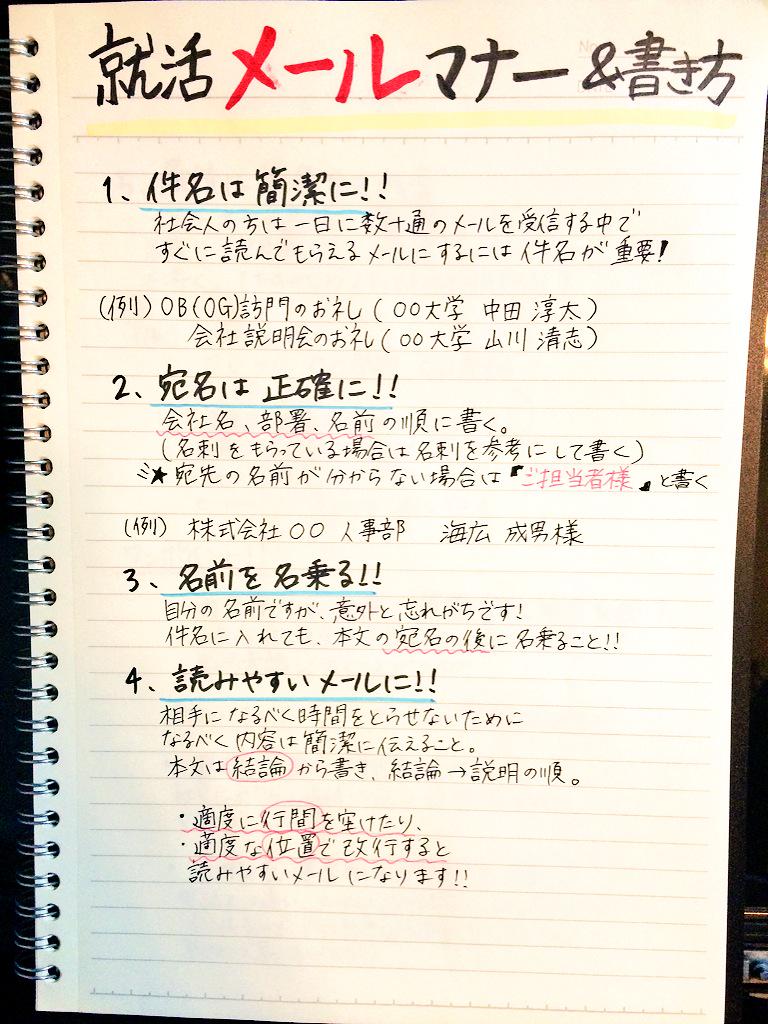 就活メールマナー&書き方
1、件名は簡潔に!!
社会人の方は一日に数十通のメールを受信する中で
すぐに読んでもらえるメールにするには件名が重要!
(例)OB(OG)訪門のお礼(○○大学 中田 淳太)
会社説明会のお礼(○○大学 山川 清志)
2、宛名は正確に!!
会社名、部署、名前の順に書く。
(名刺をもらっている場合は名刺を参考にして書く)
★宛先の名前が分からない場合は『ご担当者様』と書く
(例) 株式会社○○ 人事部 海広 成男様
3、名前を名乗る!!
自分の名前ですが、意外と忘れがちです!
件名に入れても、本文の宛名の後に名乗ること!!
4、読みやすいメールに!!
相手になるべく時間をとらせないために
なるべく内容は簡潔に伝えること。
本文は結論から書き、結論→説明の順。
・適度に行間を空けたり、
・適度な位置で改行すると
読みやすいメールになります!!